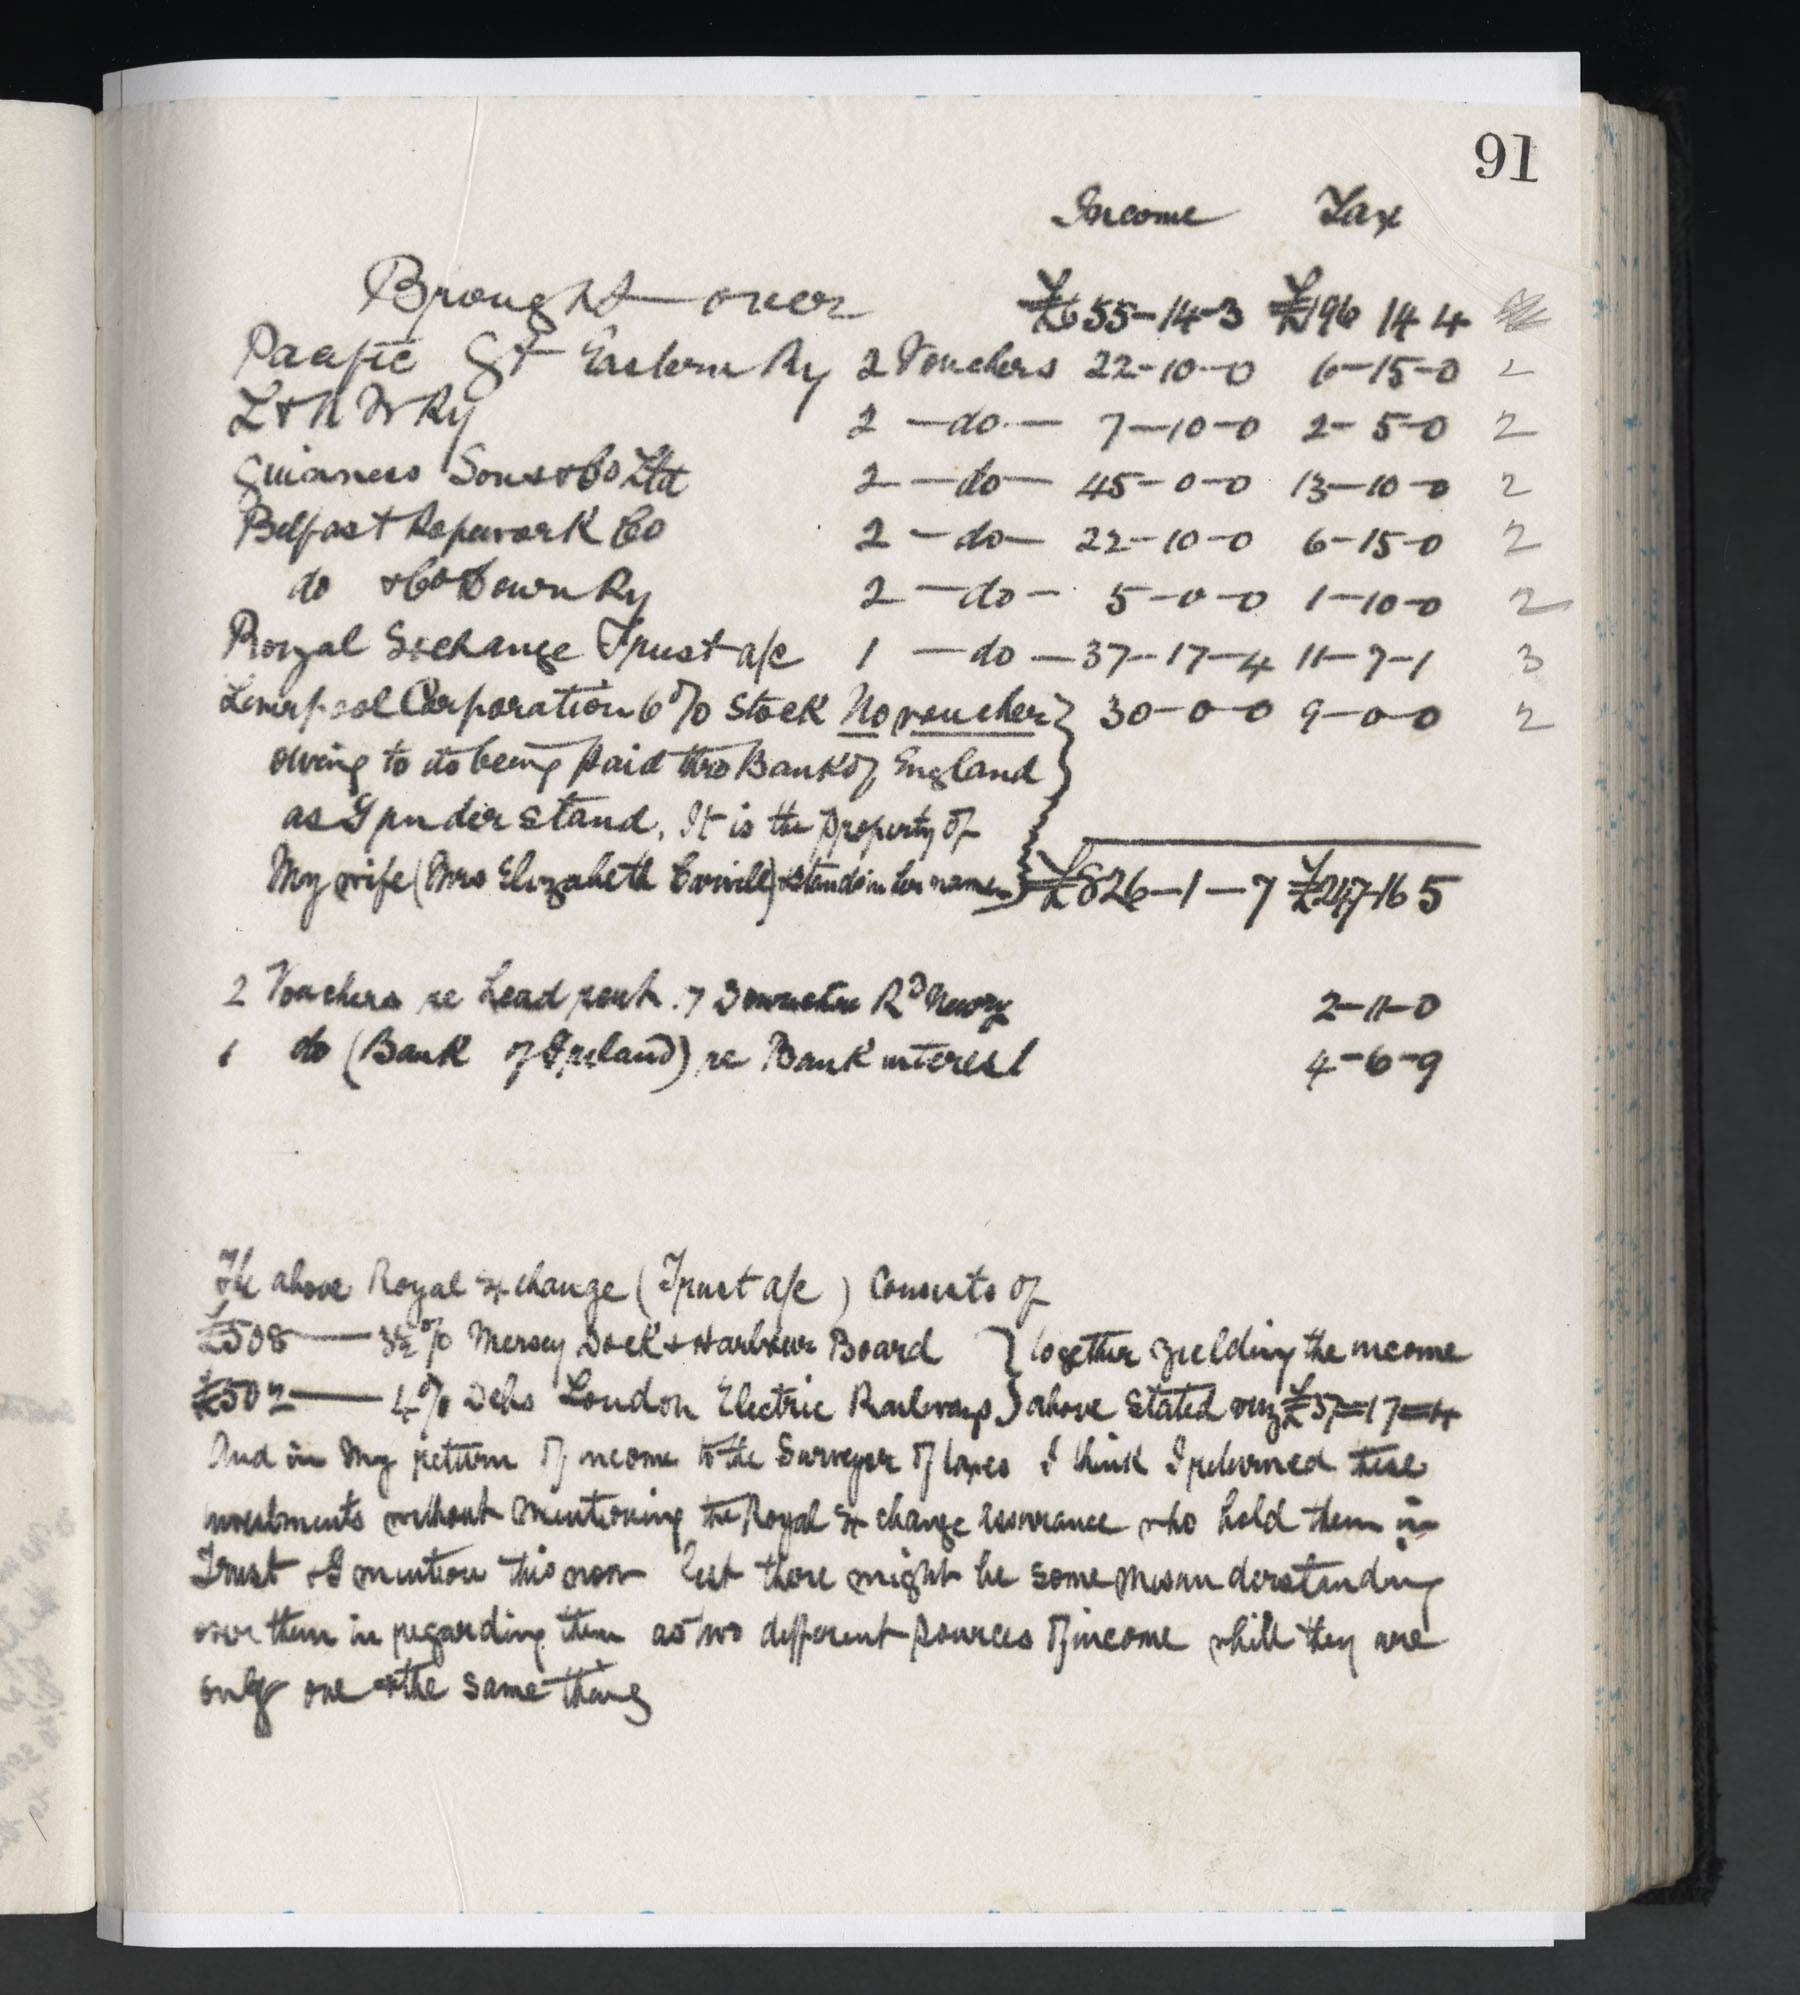 91
Income Tax
Brought over £655-14-3 £196 14 4
Pacific Gt Eastern Ry 2 Vouchers 22-10-0 6-15-0 2
L & N W Ry 2 -do- 7-10-0 2-5-0 2
Guinness Sons & Co Ltd 2 -do- 45-0-0 13-10-0 2
Belfast Ropework Co 2 -do- 22-10-0 6-15-0 2
do & Co Down Ry 2 -do- 5-0-0 1-10-0 2
Royal Exchange Trust a/c 1 -do- 37-17-4 11-7-1 3
Liverpool Corporation 6% Stock No voucher 30-0-0 9-0-0 2
owing to its being paid thro Bank of England
as I understand. It is the property of
My wife (Mrs Elizabeth Carvill) & stands in her name £826-1-7 £247-16 5
2 Vouchers re head rent . 7 Downshire Rd Newry 2-11-0
1 do (Bank of Ireland) re Bank interest 4-6-9
The above Royal Exchange (Trust a/c) Consists of
£508 — 3½% Mersey Dock & Harbour Board } together yielding the income
£502 — 4% Debs London Electric Railways } above stated viz £37=17=4
And in my return of income to the Surveyor of taxes I think I returned these
investments without mentioning the Royal Exchange Assurance who hold them in
Trust & I mention this now lest there might be some misunderstanding
over them in regarding them as two different sources of income while they are
only one & the same thing